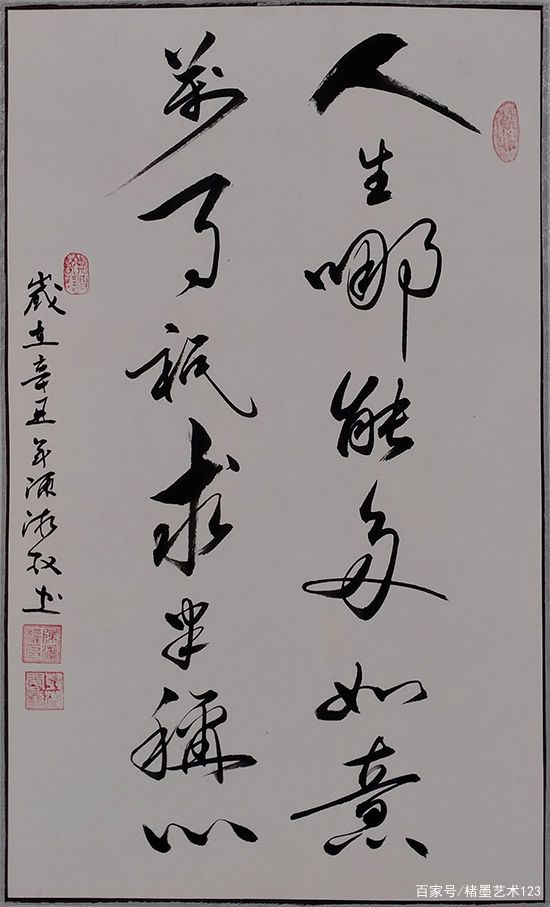 人生哪能多如意
萬事祇求半稱心
歲在辛丑年书
百家号/楮墨艺术123